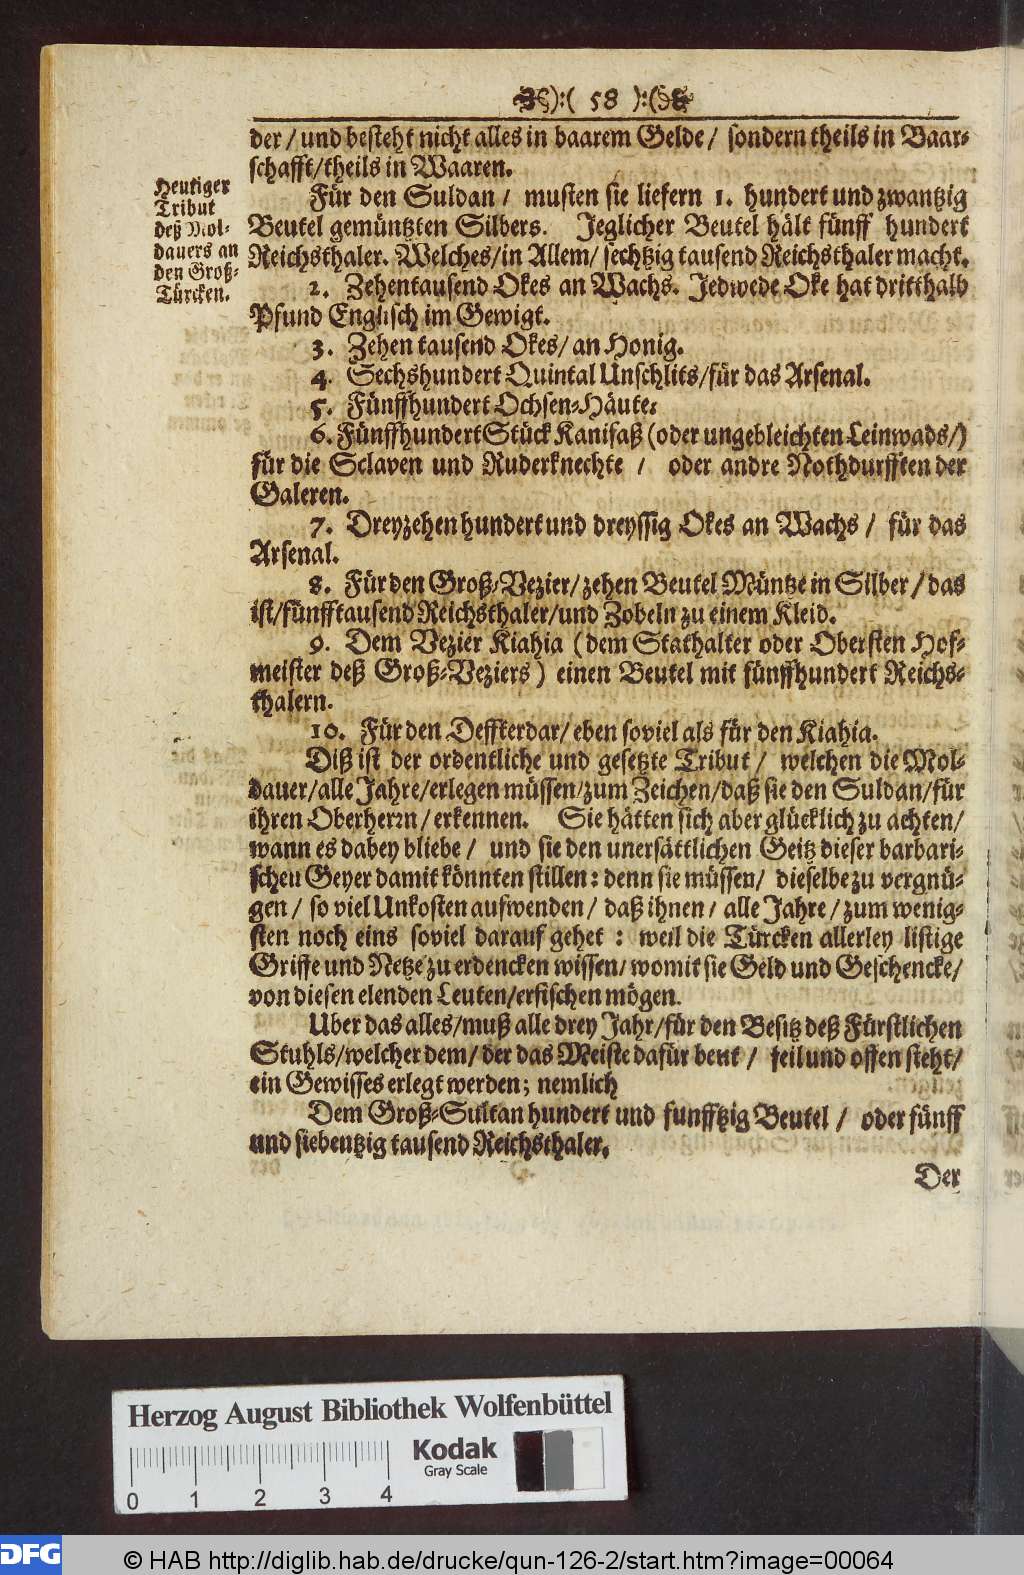 ):( 58 ):(
der / und besteht nicht alles in baarem Gelde / sondern theils in Baar-
schafft/theils in Waaren.
Heutiger
Tribut
deß Mol-
dauers an
den Groß-
Türcken.
Für den Suldan / musten sie liefern 1. hundert und zwantzig
Beutel gemüntzten Silbers. Jeglicher Beutel hält fünff hundert
Reichsthaler. Welches/in Allem/ sechtzig tausend Reichsthaler macht.
2. Zehentausend Okes an Wachs. Jedwede Oke hat dritthalb
Pfund Englisch im Gewigt.
3. Zehen tausend Okes/ an Honig.
4. Sechshundert Quintal Unschlits/für das Arsenal.
5. Fünffhundert Ochsen-Häute.
6. Fünffhundert Stück Kanifaß (oder ungebleichten Leinwads/)
für die Sclaven und Ruderknechte / oder andre Nothdurfften der
Galeren.
7. Dreyzehen hundert und dreyssig Okes an Wachs / für das
Arsenal.
8. Für den Groß-Vezier/ zehen Beutel Müntze in Silber / das
ist/fünfftausend Reichsthaler/und Zobeln zu einem Kleid.
9. Dem Vezier Kiahia (dem Stathalter oder Obersten Hof-
meister deß Groß-Veziers) einen Beutel mit fünffhundert Reichs-
thalern.
10. Für den Deffterdar/ eben soviel als für den Kiahia.
Diß ist der ordentliche und gesetzte Tribut / welchen die Mol-
dauer/alle Jahre/erlegen müssen/zum Zeichen/daß sie den Suldan/für
ihren Oberherrn/ erkennen. Sie hätten sich aber glücklich zu achten/
wann es dabey bliebe / und sie den unersättlichen Geitz dieser barbari-
schen Geyer damit könnten stillen: denn sie müssen/ dieselbe zu vergnü-
gen / so viel Unkosten aufwenden / daß ihnen / alle Jahre / zum wenig-
sten noch eins soviel darauf gehet : weil die Türcken allerley listige
Griffe und Netze zu erdencken wissen/ womit sie Geld und Geschencke/
von diesen elenden Leuten/erfischen mögen.
Uber das alles/muß alle drey Jahr/für den Besitz deß Fürstlichen
Stuhls/welcher dem/ der das Meiste dafür beut / feil und offen steht/
ein Gewisses erlegt werden; nemlich
Dem Groß-Sultan hundert und funfftzig Beutel / oder fünff
und siebentzig tausend Reichsthaler.
Der
Herzog August Bibliothek Wolfenbüttel
Kodak
Gray Scale
0 1 2 3 4
DFG
© HAB http://diglib.hab.de/drucke/qun-126-2/start.htm?image=00064